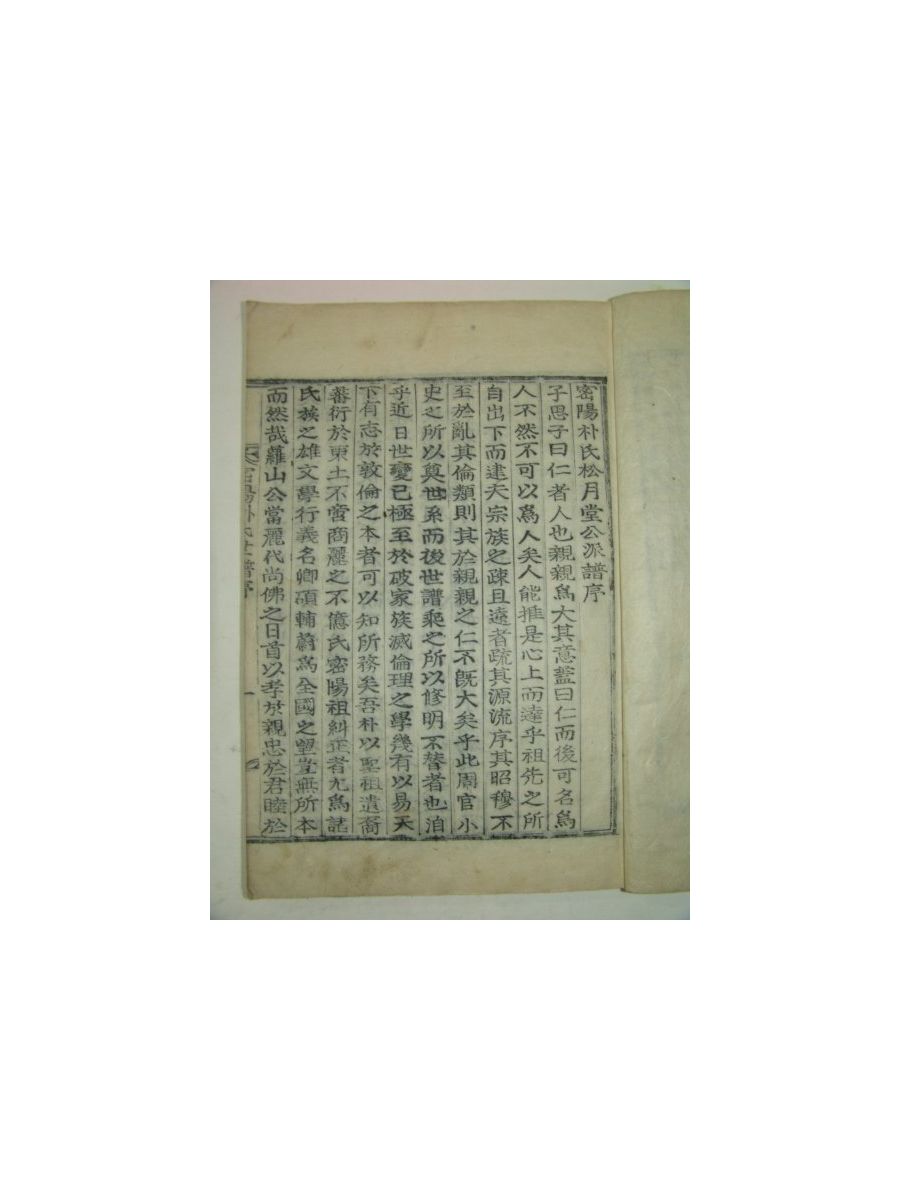 密陽朴氏松月堂公派譜序
子思子曰仁者人也親親爲大其意蓋曰仁而後可名爲
人不然不可以爲人矣人能推是心上而達乎祖先之所
自出下而逮夫宗族之疎且遠者疏其源流序其昭穆不
至於亂其倫類則其於親親之仁不旣大矣乎此周官小
史之所以奠世系而後世譜乘之所以修明不替者也洎
乎近日世變已極至於破家族滅倫理之學幾有以易天
下有志於敦倫之本者可以知所務矣吾朴以聖祖遺裔
蕃衍於東土不啻商麗之不億氏密陽祖糾正者尤爲誌
氏族之雄文學行義名卿碩輔蔚爲全國之望豈無所本
而然哉蘿山公當麗代尚佛之日首以孝於親忠於君睦於
密陽朴氏世譜序
一